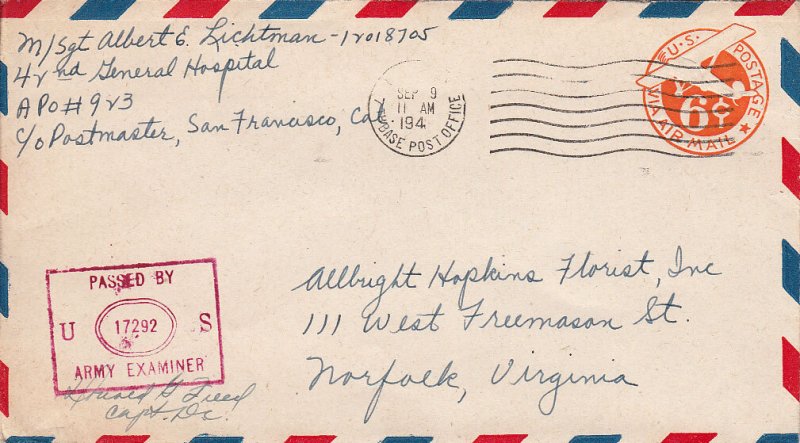 M/Sgt Albert E. Lichtman - 12018705
42nd General Hospital
APO # 923
c/o Postmaster, San Francisco, Cal
SEP 9
11 AM
194
BASE POST OFFICE
U.S. POSTAGE
6¢
VIA AIR MAIL
Allbright Hopkins Florist, Inc
111 West Freemason St.
Norfolk, Virginia
PASSED BY
U 17292 S
ARMY EXAMINER
Capt. Dc.